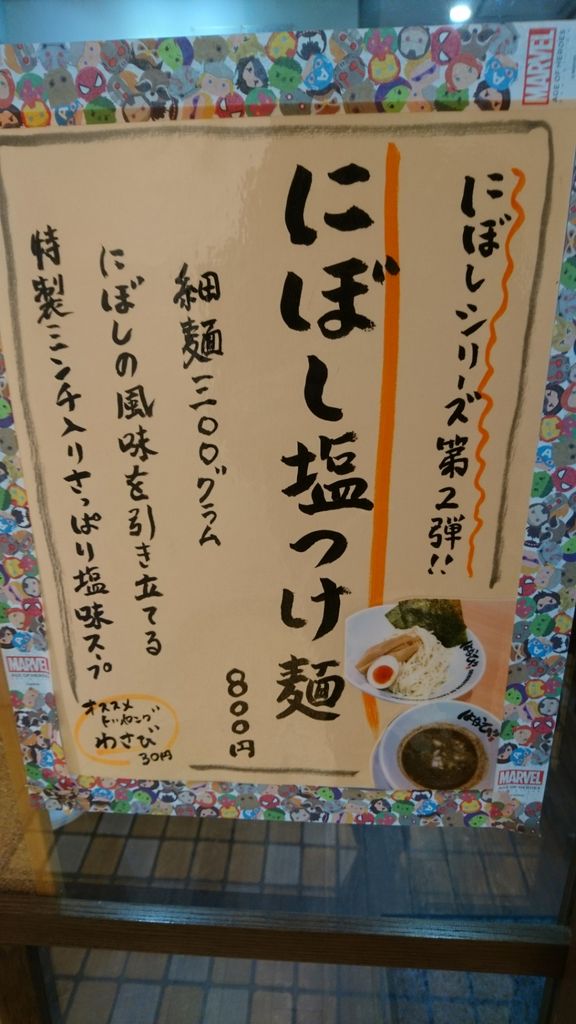 にぼしシリーズ第2弾!!
にぼし塩つけ麺
800円
細麺三〇〇グラム
にぼしの風味を引き立てる
特製ミンチ入りさっぱり塩味スープ
オススメ
トッピング
わさび
30円
MARVEL
AGE OF HEROES
MARVEL
AGE OF HEROES
MARVEL
AGE OF HEROES